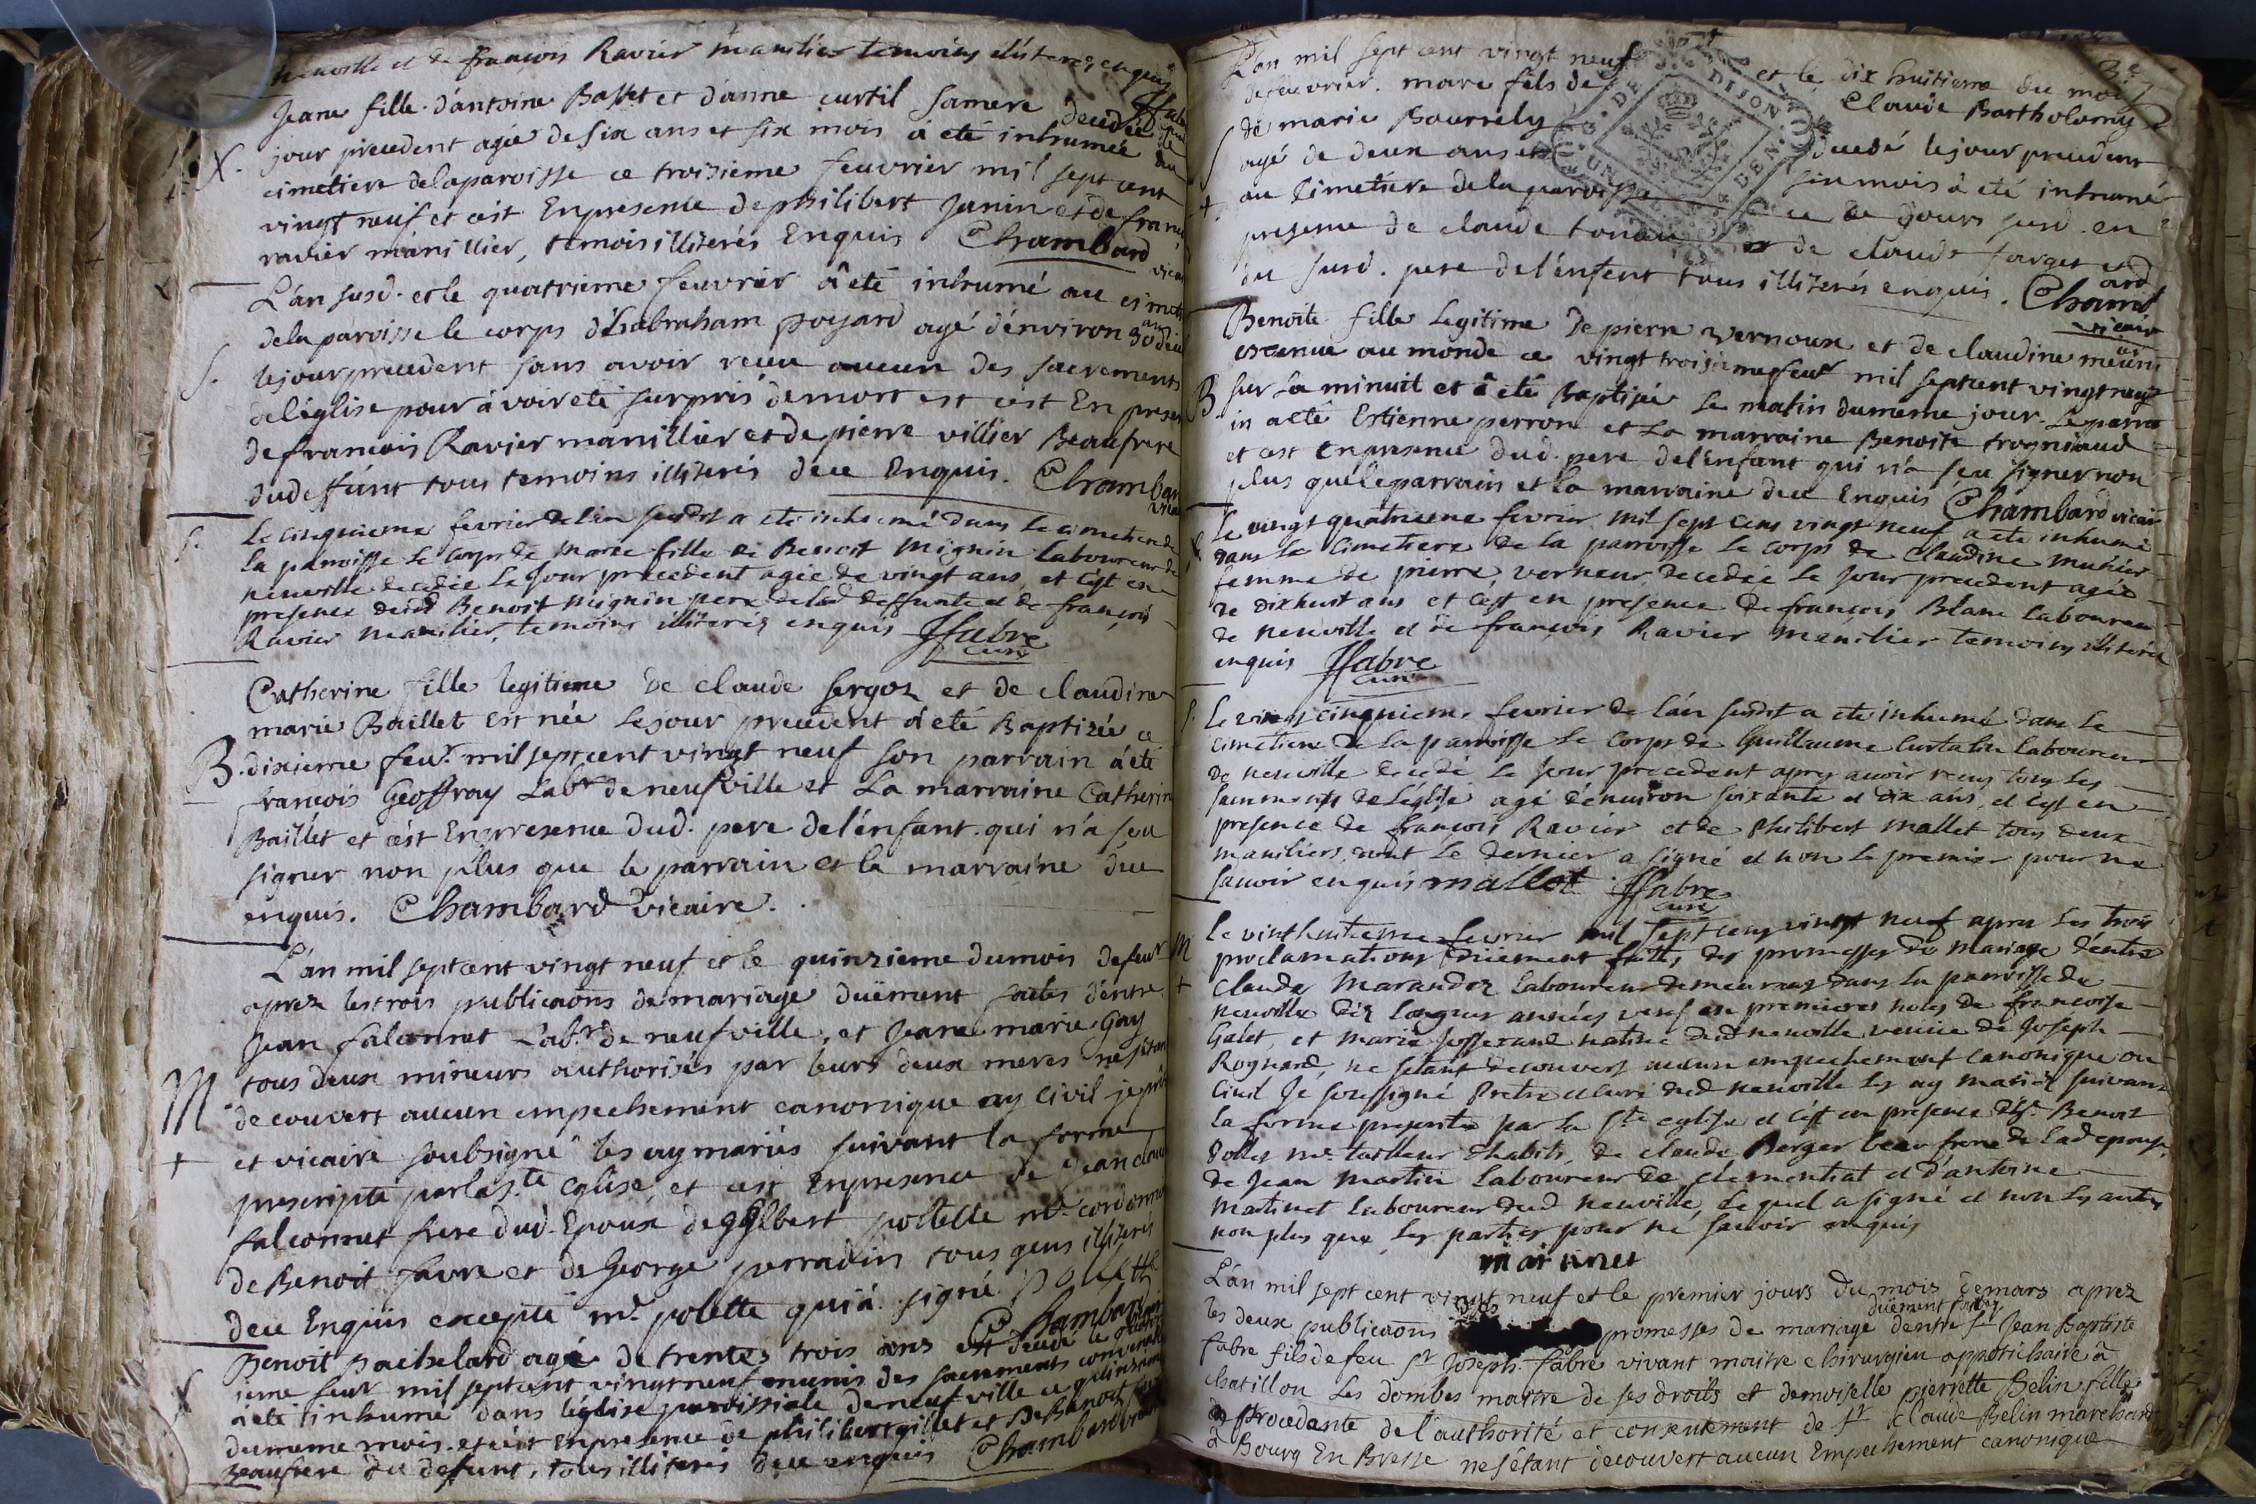 neuville et de françois Ravier manilier temoins illiteres enquis
Jeane fille d'antoine Basset et d'anne curtil sa mere decedée le
X. jour precedent agée de six ans et six mois à eté inhumée au
cimetiere de la paroisse ce troisieme feuvrier mil sept cent
vingt neuf et c'est En presence de philibert Janin et de francois
ravier manillier, temois illiterés Enquis Chambard vicaire
L'an susd. et le quatrieme feuvrier à eté inhumé au cimet
de la paroisse le corps d'habraham poyard agé d'environ 30 ans
S. le jour precedent sans avoir receu aucun des sacrements
de l'église pour avoir eté surpris de mort et c'est En presence
de francois Ravier manillier et de pierre villier Beaufrere
du deffunt tous temoins illiterés de ce Enquis. Chambard
vicaire
S. Le cinquieme fevrier de l'an susdit a ete inhumé dans le cimetiere de
la paroisse le corps de Marie fille de Benoit Mignin Laboureur de
neuville decedée le jour precedent agée de vingt ans, et c'est en
presence dud Benoit Mignin pere de lad deffunte et de françois
Ravier manilier, temoins illiteres enquis Jfabre
curé
Catherine fille legitime de claude sergoz et de claudine
marie Baillet est née le jour precedent à eté Baptizée ce
B. dixieme feuv. mil sept cent vingt neuf son parrain à eté
francois Geoffray Labr de neufville et La marraine Catherine
Baillet et c'est En presence dud. pere de l'énfant qui n'a seu
signer non plus que le parrain et la marraine de ce
enquis. Chambard vicaire.
L'an mil sept cent vingt neuf et le quinzieme du mois de feuvr
aprez les trois publicaons de mariage duëment faites d'entre
Jean falconnet Labr. de neufville, et Jeane marie Gay
tous deux mineurs authorisés par leurs deux meres ne s'étant
M de couvert aucun empechement canonique ny Civil je prêtre
+ et vicaire soubsigné les ay mariés suivant la forme
prescripte par la s.te Eglise et c'est En presence de Jean claude
falconnet frere dud. Epoux de gilbert pollette mr. cordonnier
de Benoit favre et de George perradin tous gens illiterés
de ce Enquis excepté mr. polette qui à signé. Polette
Chambard
Benoit Bachelard agé de trente trois ans est decedé le quatorz
ieme feuv mil sept cent vingt neuf munis des sacrements convenables
à eté inhumé dans l'église paroissiale de neufville ce quinzieme
du meme mois et c'est En presence de philibert gillet et de Benoit
Beaufrere du defunt, tous illiterés de ce enquis Chambard vicaire
L'an mil sept cent vingt neuf et le dix huitieme du mois
de feuvrier. marc fils de Claude Bartholomy
S de marie Bourrely decedé le jour precedent
agé de deux ans et six mois à eté inhumé
+ au Cimetiére de la paroisse ce jours susd. en
presence de claude tondu et de claude farget et
du susd. pere de l'énfent tous illiterés enquis. Chambard
vicaire
DE DIJON
Benoite fille Legitime de pierre vernoux et de claudine meünier
est venue au monde ce vingt troisieme feuv. mil sept cent vingt neuf
B. sur la minuit et à eté Baptisée le matin du meme jour. Le parra
in a eté Estienne perron et La marraine Benoite trogniaud
et c'est en presence dud. pere de l'énfant qui n'a seu signer non
plus que le parrain et la marraine de ce Enquis Chambard vicaire
Le vingt quatrieme fevrier mil sept cens vingt neuf a ete inhumé
dans le Cimetiere de la parroisse le corps de Claudine Munier
femme de pierre verneur decedée le jour precedent agée
de dixhuit ans et c'est en presence de françois Blanc laboureur
de neuville et de françois Ravier manilier temoins illiterés
enquis Jfabre
curé
S. Le vingt cinquieme fevrier de l'an susdit a ete inhumé dans le
cimetiere de la paroisse le corps de Guillaume Curtalin laboureur
de neuville decedé le jour precedent apres avoir receu tous les
sacrements de L'église agé d'environ soixante et dix ans, et c'est en
presence de françois Ravier et de Philibert Mallet tous deux
maniliers, dont le dernier a signé et non le premier pour ne
savoir enquis mallet Jfabre
curé
M Le vinthuitieme fevrier mil sept cens vingt neuf apres les trois
proclamations düement faittes des promesses de mariage d'entre
+ Claude Marandez Laboureur demeurant dans la paroisse de
neuville dez longues années veuf en premieres noces de françoise
Galet, et Marie Josserand native dud neuville veuve de Joseph
Rognard, ne s'étant decouvert aucun empechement canonique ou
Civil Je soussigné Pretre et curé dud neuville les ay mariés suivant
la forme prescrite par la Ste eglise et c'est en presence de Sr. Benoit
Pollet mr. tailleur d'habits, de claude Berger beau frere de lad epouse,
de Jean Martin Laboureur de clementiat et d'antoine
Martinet laboureur dud neuville, le quel a signé et non les autres
non plus que les parties pour ne savoir enquis
martinet
L'an mil sept cent vingt neuf et le premier jours du mois de mars aprez
duëment faites
les deux publicaons des promesses de mariage d'entre Sr Jean Baptiste
fabre fils de feu Sr Joseph fabre vivant maitre chirurgien appotichaire à
chatillon Les dombes maitre de ses droits et demoiselle pierrette Belin fille
procedante de l'authorité et consentement de Sr Claude Belin marchand
à Bourg En Bresse ne s'étant decouvert aucun Empechement canonique